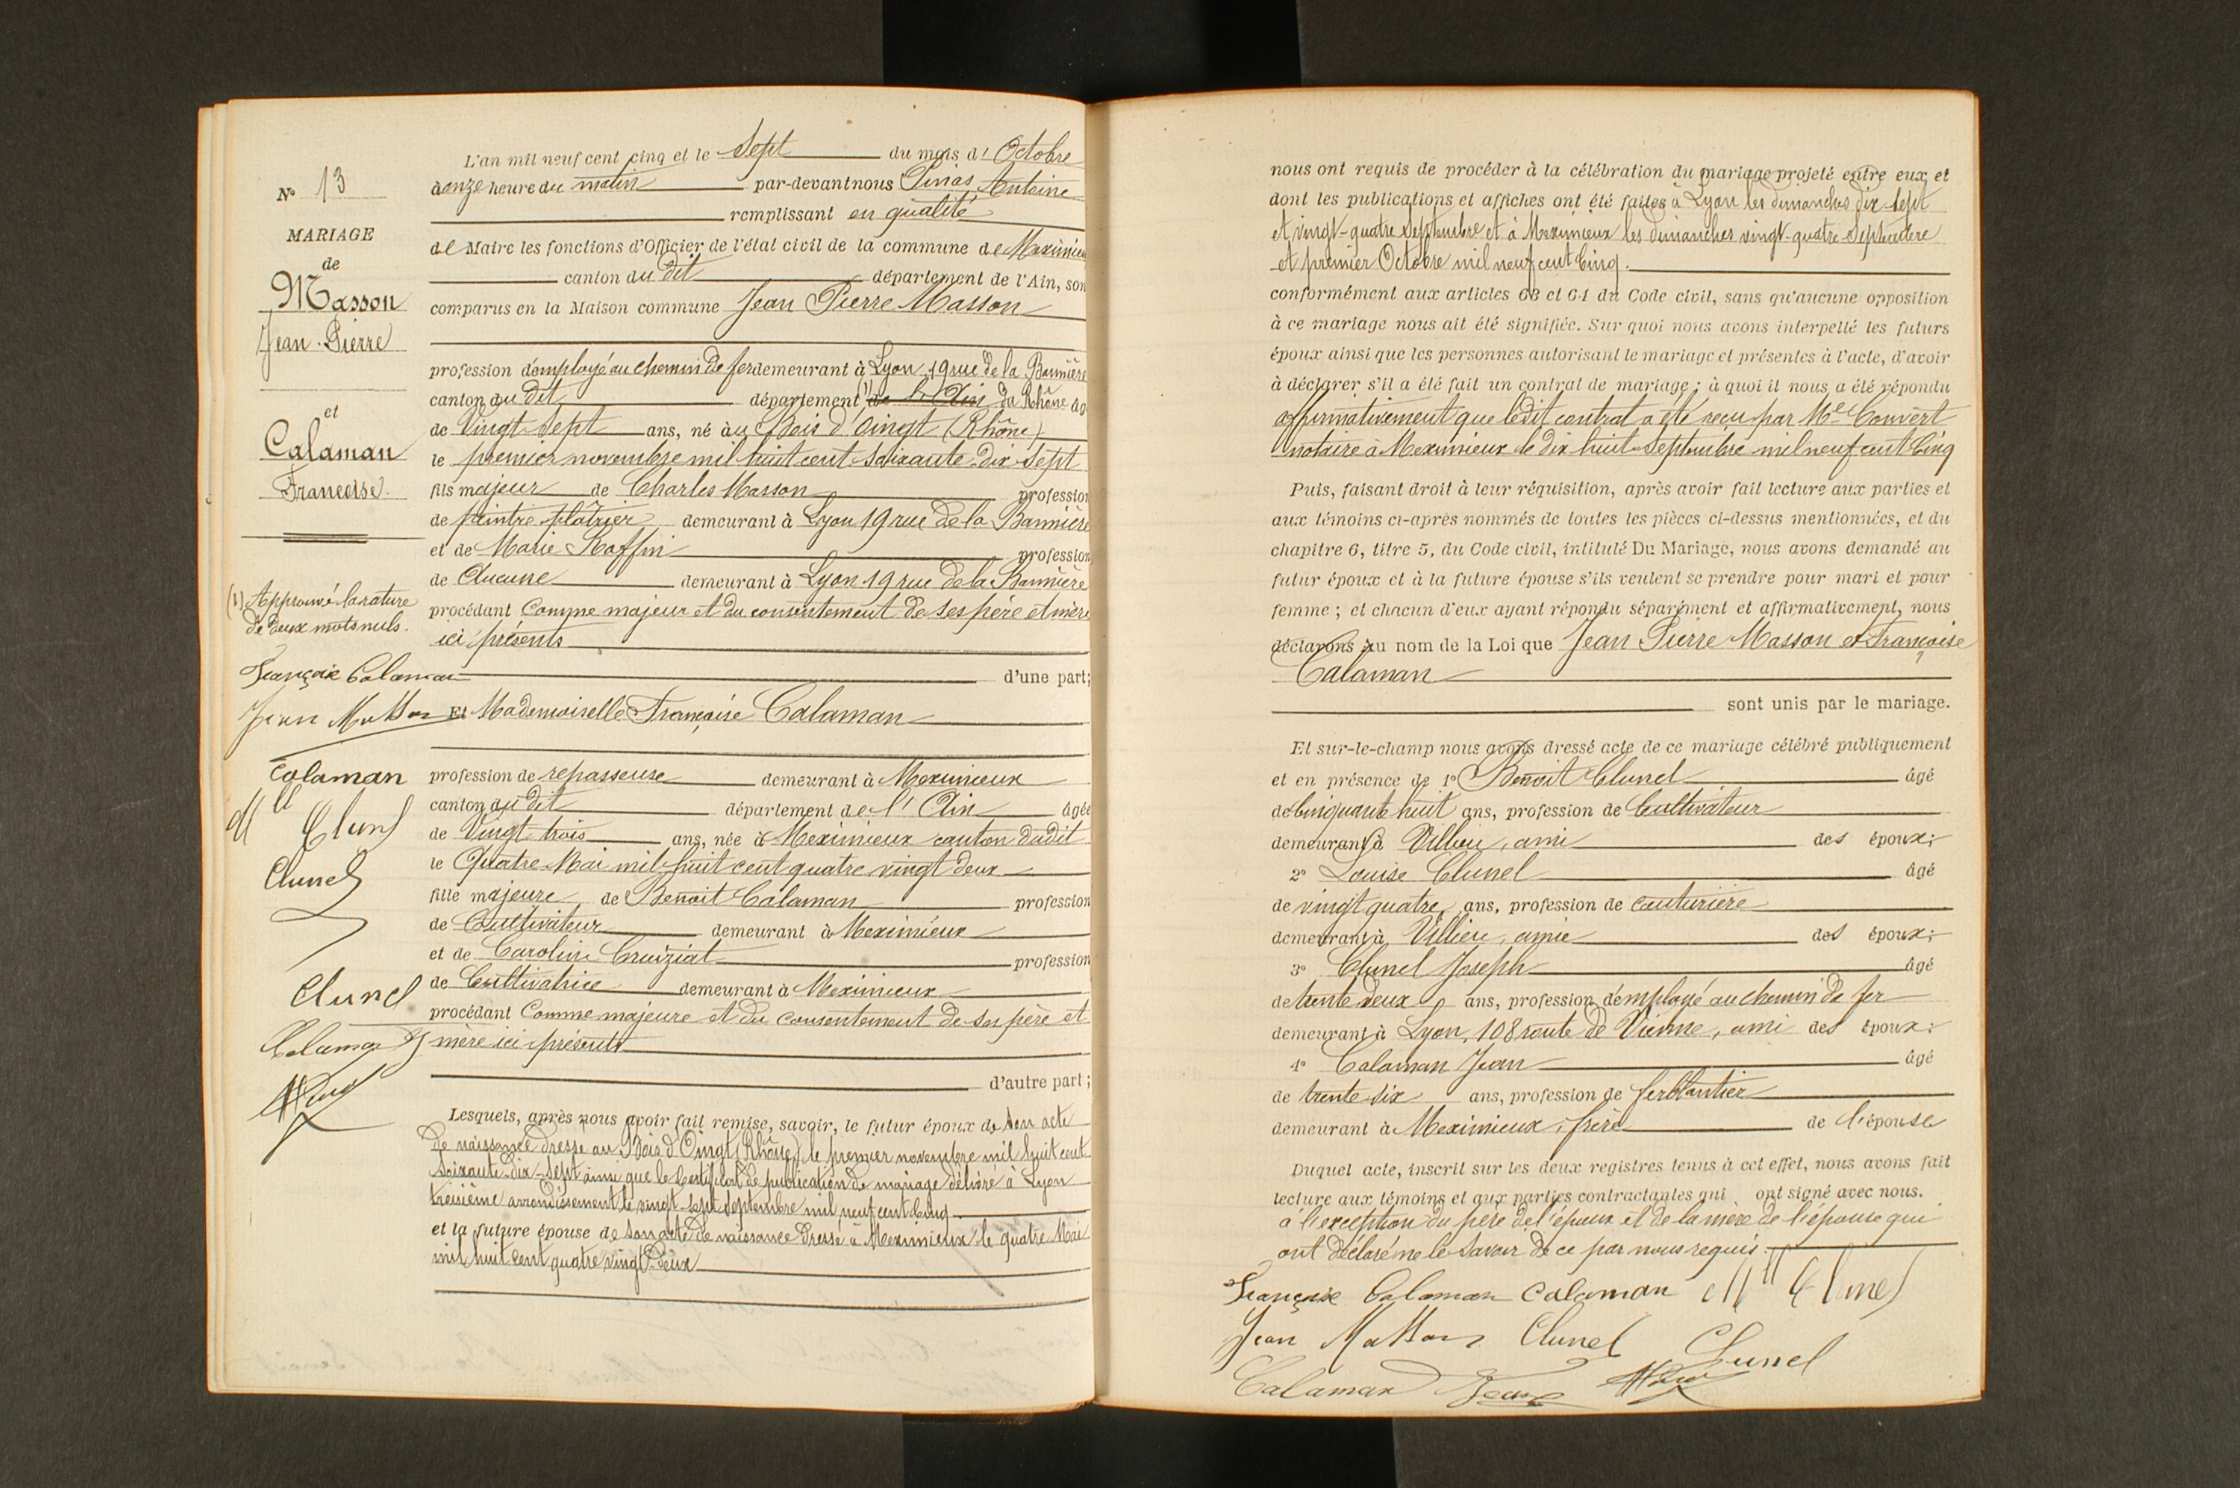 N° 13
MARIAGE
de
Masson
Jean-Pierre
et
Calaman
Francoise.
(1) Approuvé la rature
de deux mots nuls.
Françoise Calaman
Jean Masson
Calaman
Mll Clunel
Clunel
Clunel
Calaman J
L'an mil neuf cent cinq et le Sept du mois d' Octobre
à onze heure du matin par-devant nous Antoine
remplissant en qualité
de Maire les fonctions d'Officier de l'état civil de la commune de Meximieux
canton du dit département de l'Ain, son
comparus en la Maison commune Jean Pierre Masson
profession d'employé au chemin de fer demeurant à Lyon, 19 rue de la Bannière
canton du dit département (1) de l'Ain du Rhône âg
de Vingt Sept ans, né au Bois d'Oingt (Rhône)
le premier novembre mil huit cent soixante-dix-sept
fils majeur de Charles Masson profession
de peintre plâtrier demeurant à Lyon 19 rue de la Bannière
et de Marie Raffin profession
de Aucune demeurant à Lyon 19 rue de la Bannière
procédant Comme majeur et du consentement de ses père et mère
ici présents
d'une part;
Et Mademoiselle Françoise Calaman
profession de repasseuse demeurant à Meximieux
canton du dit département de l'Ain âgée
de Vingt trois ans, née à Meximieux canton dudit
le Quatre Mai mil huit cent quatre vingt deux
fille majeure de Benoit Calaman profession
de Cultivateur demeurant à Meximieux
et de Caroline Cruiziat profession
de Cultivatrice demeurant à Meximieux
procédant Comme majeure et du consentement de ses père et
mère ici présents
d'autre part;
Lesquels, après nous avoir fait remise, savoir, le futur époux de son acte
de naissance dressé au Bois d'Oingt (Rhône) le premier novembre mil huit cent
soixante-dix-sept ainsi que le Certificat de publication de mariage délivré à Lyon
troisième arrondissement le vingt-sept septembre mil neuf cent cinq
et la future épouse de son acte de naissance dressé à Meximieux le quatre Mai
mil huit cent quatre vingt-deux
nous ont requis de procéder à la célébration du mariage projeté entre eux et
dont les publications et affiches ont été faites à Lyon les dimanches dix sept
et vingt-quatre Septembre et à Meximieux les dimanches vingt-quatre Septembre
et premier Octobre mil neuf cent Cinq.
conformément aux articles 63 et 64 du Code civil, sans qu'aucune opposition
à ce mariage nous ait été signifiée. Sur quoi nous avons interpellé les futurs
époux ainsi que les personnes autorisant le mariage et présentes à l'acte, d'avoir
à déclarer s'il a été fait un contrat de mariage; à quoi il nous a été répondu
affirmativement que ledit contrat a été reçu par Me Convert
notaire à Meximieux le dix huit Septembre mil neuf cent Cinq
Puis, faisant droit à leur réquisition, après avoir fait lecture aux parties et
aux témoins ci-après nommés de toutes les pièces ci-dessus mentionnées, et du
chapitre 6, titre 5, du Code civil, intitulé Du Mariage, nous avons demandé au
futur époux et à la future épouse s'ils veulent se prendre pour mari et pour
femme; et chacun d'eux ayant répondu séparément et affirmativement, nous
déclarons au nom de la Loi que Jean Pierre Masson et Françoise
Calaman
sont unis par le mariage.
Et sur-le-champ nous avons dressé acte de ce mariage célébré publiquement
et en présence de 1° Benoit Clunel âgé
de Cinquante huit ans, profession de Cultivateur
demeurant à Villieu, ami des époux;
2° Louise Clunel âgé
de vingt quatre ans, profession de couturière
demeurant à Villieu, amie des époux;
3° Clunel Joseph âgé
de trente deux ans, profession d'employé au chemin de fer
demeurant à Lyon, 108 route de Vienne, ami des époux;
4° Calaman Jean âgé
de trente six ans, profession de ferblantier
demeurant à Meximieux, frère de l'épouse
Duquel acte, inscrit sur les deux registres tenus à cet effet, nous avons fait
lecture aux témoins et aux parties contractantes qui ont signé avec nous.
à l'exception du père de l'époux et de la mère de l'épouse qui
ont déclaré ne le savoir de ce par nous requis.
Françoise Calaman Calaman Mll Clunel
Jean Masson Clunel Clunel
Calaman Jean